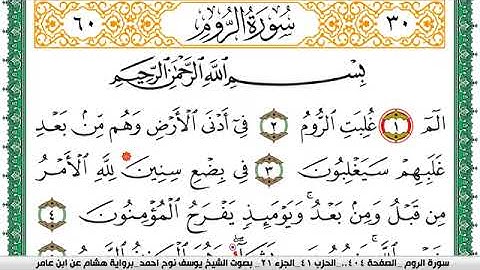 ٣٠ سُورَةُ الرُّومِ ٦٠
بِسْمِ اللَّهِ الرَّحْمَٰنِ الرَّحِيمِ
الٓمٓ ١ غُلِبَتِ ٱلرُّومُ ٢ فِىٓ أَدْنَى ٱلْأَرْضِ وَهُم مِّنۢ بَعْدِ
غَلَبِهِمْ سَيَغْلِبُونَ ٣ فِى بِضْعِ سِنِينَ لِلَّهِ ٱلْأَمْرُ
مِن قَبْلُ وَمِنۢ بَعْدُ وَيَوْمَئِذٍ يَفْرَحُ ٱلْمُؤْمِنُونَ ٤
سورة الروم _ الصفحة ٤٠٤.._ الحزب ٤١_الجزء ٢١_ بصوت الشيخ يوسف نوح احمد_برواية هشام عن ابن عامر